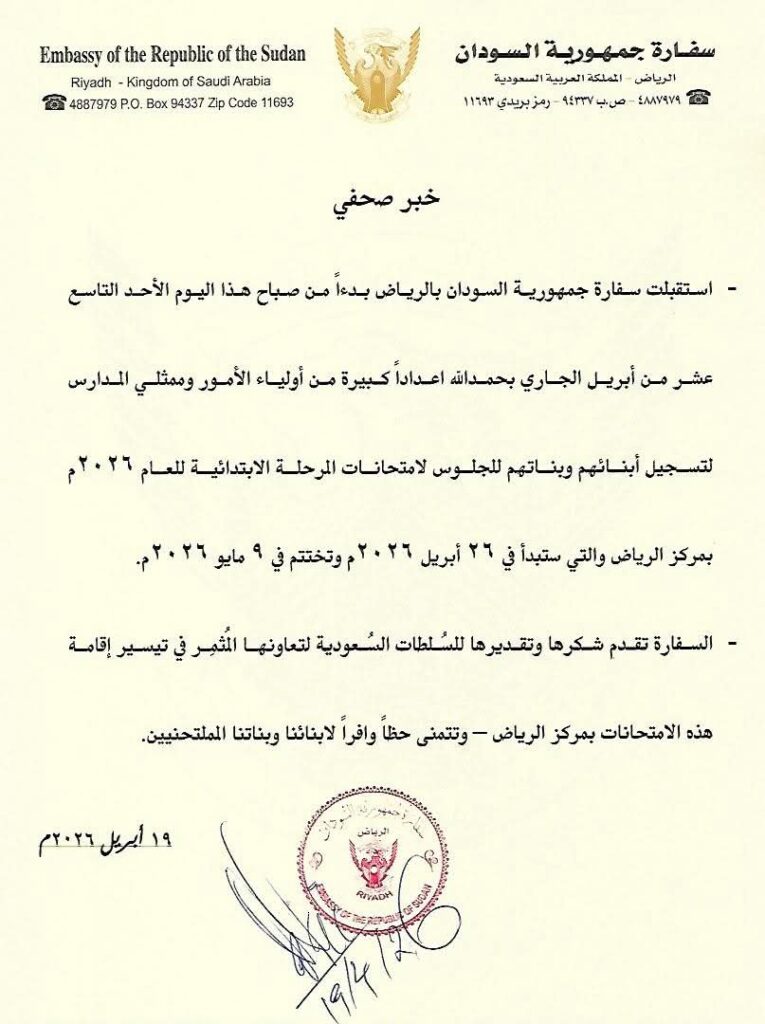 Embassy of the Republic of the Sudan
Riyadh - Kingdom of Saudi Arabia
4887979 P.O. Box 94337 Zip Code 11693
سفارة جمهورية السودان
الرياض - المملكة العربية السعودية
٤٨٨٧٩٧٩ - ص.ب ٩٤٣٣٧ - رمز بريدي ١١٦٩٣
خبر صحفي
- استقبلت سفارة جمهورية السودان بالرياض بدءاً من صباح هذا اليوم الأحد التاسع
عشر من أبريل الجاري بحمدالله اعداداً كبيرة من أولياء الأمور وممثلي المدارس
لتسجيل أبنائهم وبناتهم للجلوس لامتحانات المرحلة الابتدائية للعام ٢٠٢٦م
بمركز الرياض والتي ستبدأ في ٢٦ أبريل ٢٠٢٦م وتختتم في ٩ مايو ٢٠٢٦م.
- السفارة تقدم شكرها وتقديرها للسُلطات السُعودية لتعاونها المُثمِر في تيسير إقامة
هذه الامتحانات بمركز الرياض – وتتمنى حظاً وافراً لابنائنا وبناتنا الممتلحنيين.
١٩ أبريل ٢٠٢٦م
سفارة جمهورية السودان
الرياض
RIYADH
EMBASSY OF THE REPUBLIC OF SUDAN
19/4/26